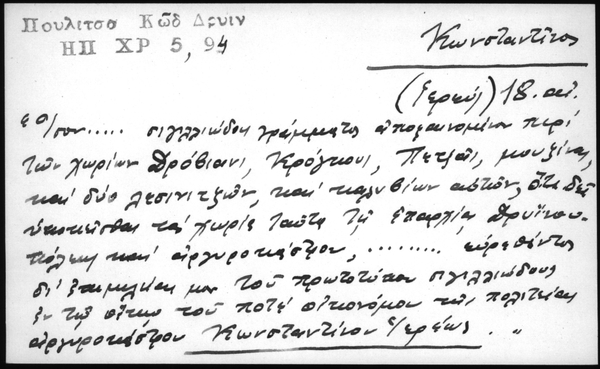 Πουλιτσα Κῶδ Δρυιν
ΗΠ ΧΡ 5, 94
Κωνσταντῖνος
(Ἱερεύς) 18. αἰ.
"Ἴσον..... σιγιλλιώδους γράμματος ἀποφαινομένου περί
τῶν χωρίων Δρόβιανι, Κρόγκουι, Πετζᾶι, μουζίνας,
καί δύο λεσινιτζῶν, καί καλυβίων αὐτῶν, ὅτι δεῖ
ὑποκεῖσθαι τά χωρία ταῦτα τῇ ἐπαρχίᾳ Δρυϊνου-
πόλεως καί ἀργυροκάστρου, ......... εὑρεθέντος
δι' ἐπιμελείας μου τοῦ πρωτοτύπου σιγιλλιώδους
ἐν τῷ οἴκῳ τοῦ ποτέ οἰκονόμου τῆς πολιτείας
ἀργυροκάστρου Κωνσταντίνου ἱερέως . "